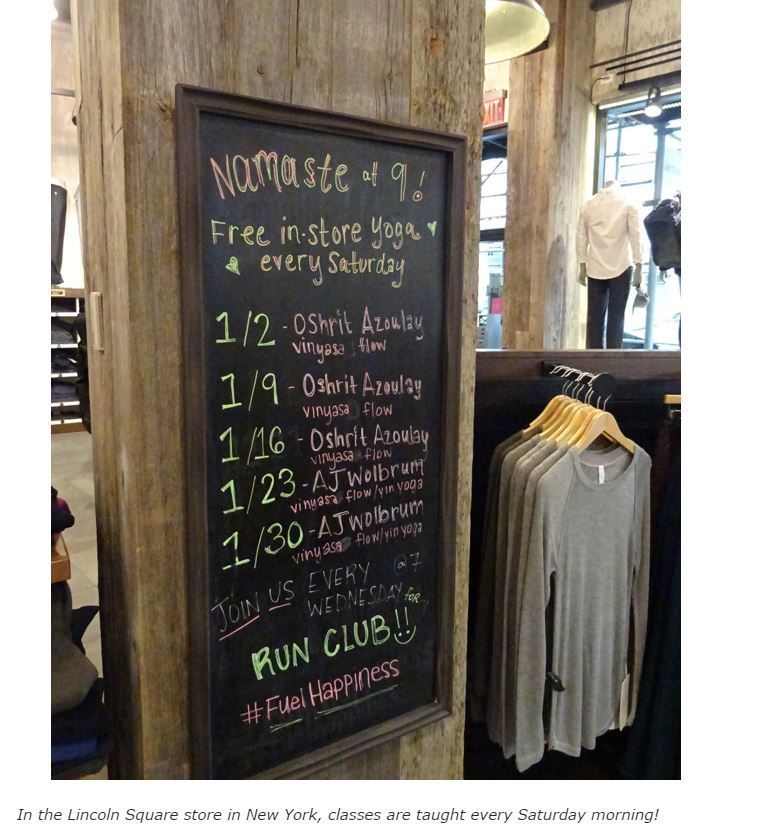 Namaste at 9!
Free in-store Yoga
every Saturday
1/2 - Oshrit Azoulay
vinyasa flow
1/9 - Oshrit Azoulay
vinyasa flow
1/16 - Oshrit Azoulay
vinyasa flow
1/23 - AJ Wolbrum
vinyasa flow/yin yoga
1/30 - AJ Wolbrum
vinyasa flow/yin yoga
JOIN US EVERY @ 7
WEDNESDAY for..
RUN CLUB!!
#Fuel Happiness
In the Lincoln Square store in New York, classes are taught every Saturday morning!